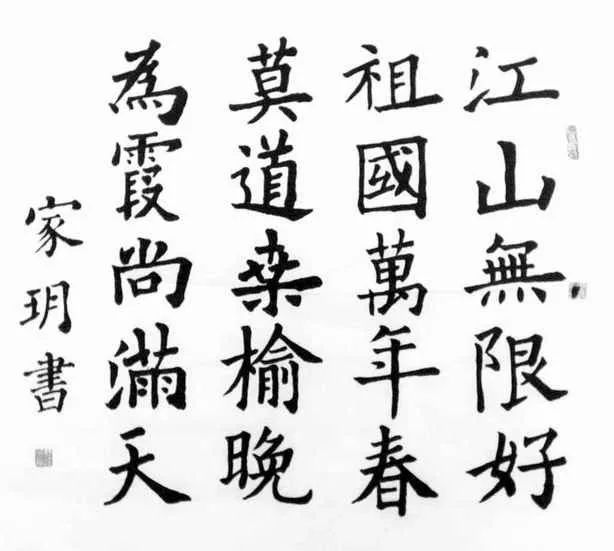 江山無限好
祖國萬年春
莫道桒榆晚
為霞尚滿天
家玥書